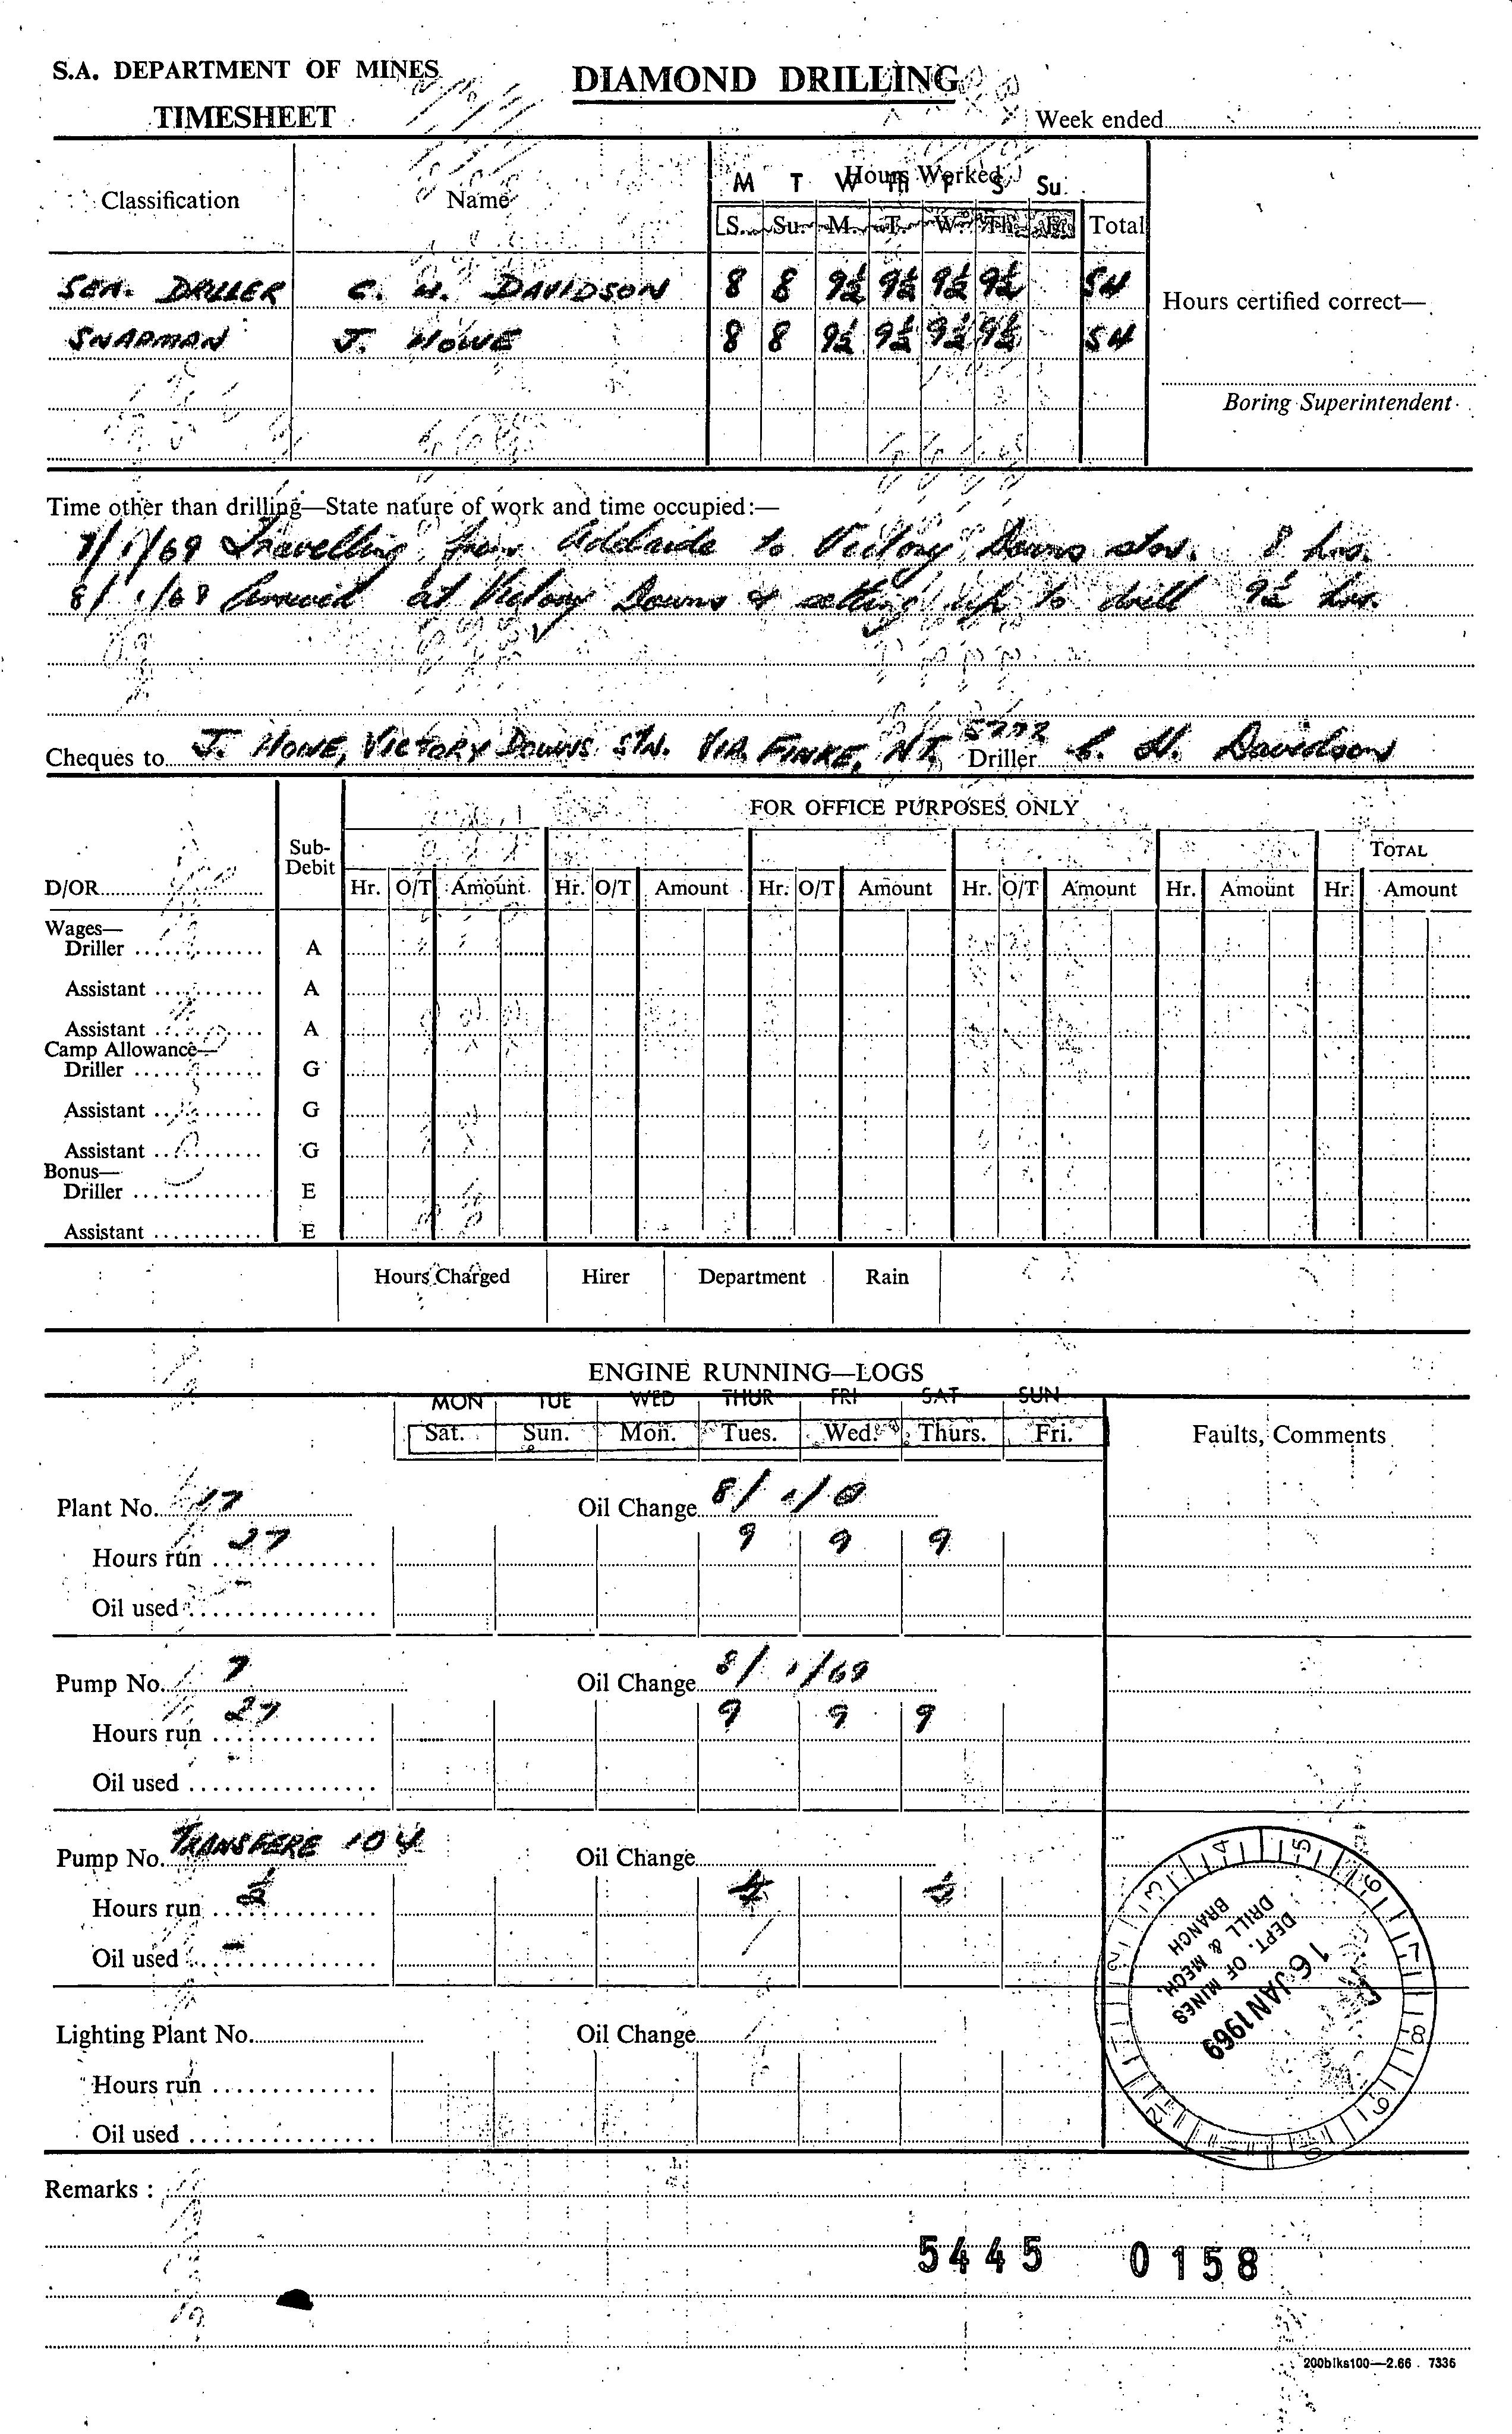 S.A. DEPARTMENT OF MINES
DIAMOND DRILLING
TIMESHEET
Week ended
Classification Name Hours Worked
M T W Th F S Su
S. Su. M. T. W. Th. F. Total
SEN. DRILLER C. H. DAVIDSON 8 8 9½ 9½ 9½ 9½ 54
Hours certified correct—
SNAPMAN J. HOWE 8 8 9½ 9½ 9½ 9½ 54
Boring Superintendent
Time other than drilling—State nature of work and time occupied:—
7/1/69 Travelling from Adelaide to Victory Downs stn. 8 hrs.
8/1/69 Arrived at Victory Downs & setting up to drill 9½ hrs.
Cheques to J. HOWE, VICTORY DOWNS STN. VIA FINKE, NT. 5272 Driller C. H. Davidson
FOR OFFICE PURPOSES ONLY
Sub-Debit
TOTAL
D/OR Hr. O/T Amount Hr. O/T Amount Hr. O/T Amount Hr. O/T Amount Hr. Amount Hr. Amount
Wages—
Driller A
Assistant A
Assistant A
Camp Allowance—
Driller G
Assistant G
Assistant G
Bonus—
Driller E
Assistant E
Hours Charged Hirer Department Rain
ENGINE RUNNING—LOGS
MON TUE WED THUR FRI SAT SUN
Sat. Sun. Mon. Tues. Wed. Thurs. Fri. Faults, Comments
Plant No. 17 Oil Change 8/1/
Hours run 27 9 9 9
Oil used -
Pump No. 7 Oil Change 8/1/69
Hours run 27 9 9 9
Oil used
Pump No. TRANSFERE 104 Oil Change
Hours run
Oil used -
Lighting Plant No. Oil Change
Hours run
Oil used
DEPT. OF MINES
DRILL & MECH.
BRANCH
16 JAN 1969
Remarks :
5445 0158
200blks100—2.66 7336